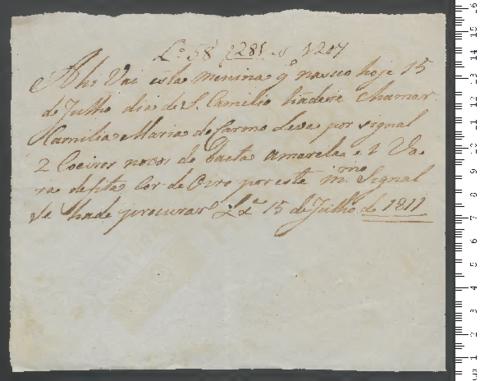 L.º 58 f 281 N 1207
Ahi Vai esta menina q̃ nasceo hoje 15
de Julho dia de S. Camilio hade se chamar
Camilia Maria do Carmo Leva por signal
2 Coeiros novos de Baeta amarela e 1 Va
ra de fita Cor de Oiro por este m.mo Signal
Se hade procurar Lx.ª 15 de Julho de 1811